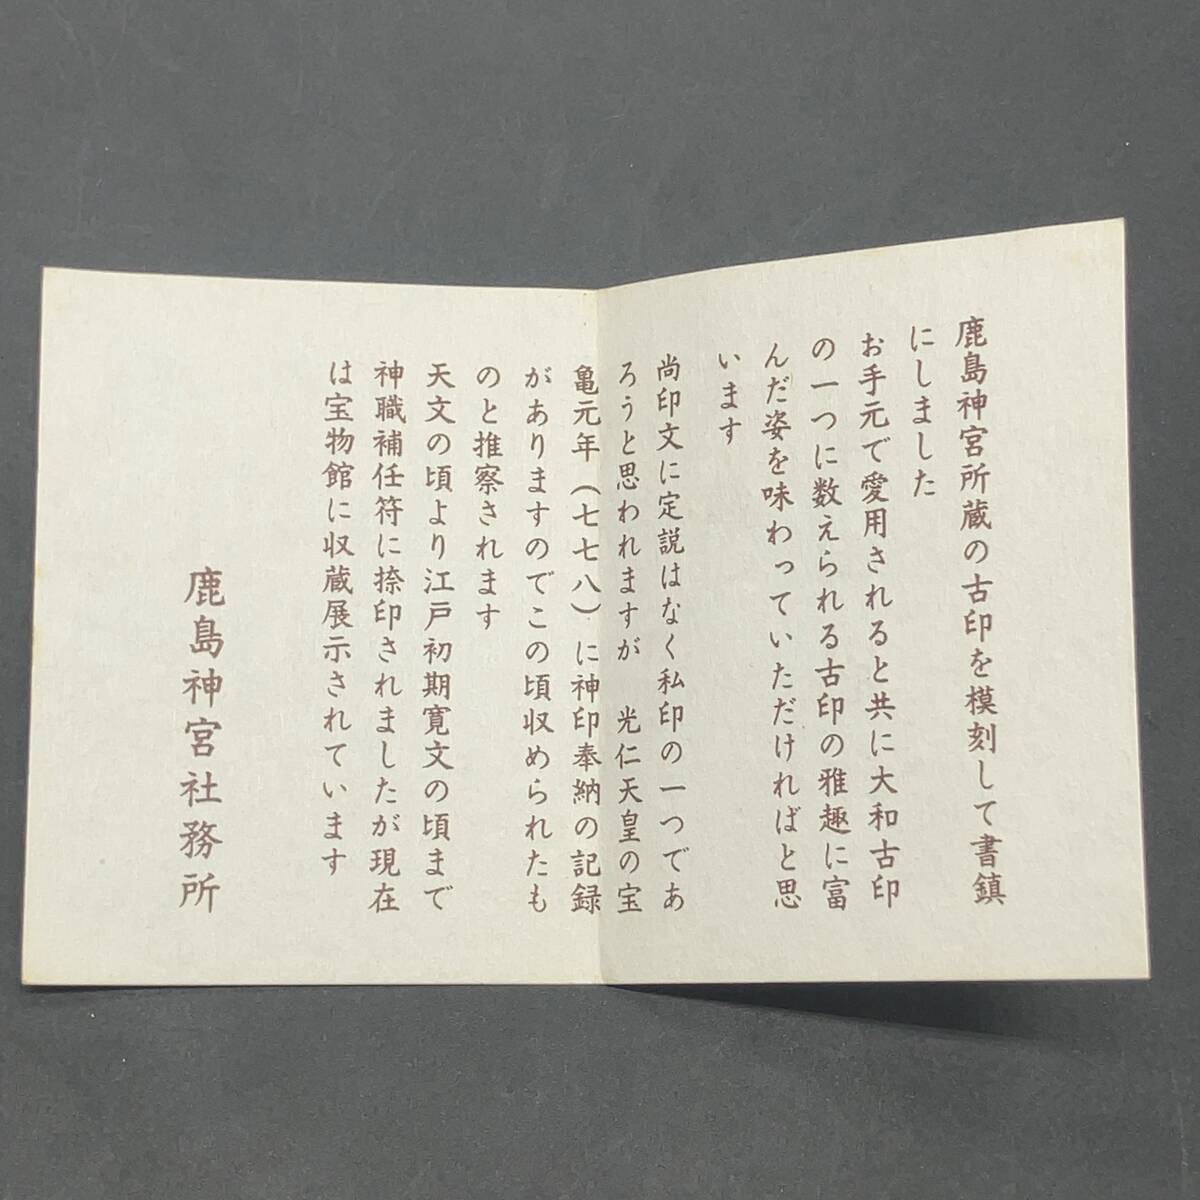 鹿島神宮所蔵の古印を模刻して書鎮
にしました
お手元で愛用されると共に大和古印
の一つに数えられる古印の雅趣に富
んだ姿を味わっていただければと思
います
尚印文に定説はなく私印の一つであ
ろうと思われますが　光仁天皇の宝
亀元年（七七八）に神印奉納の記録
がありますのでこの頃収められたも
のと推察されます
天文の頃より江戸初期寛文の頃まで
神職補任符に捺印されましたが現在
は宝物館に収蔵展示されています
鹿島神宮社務所